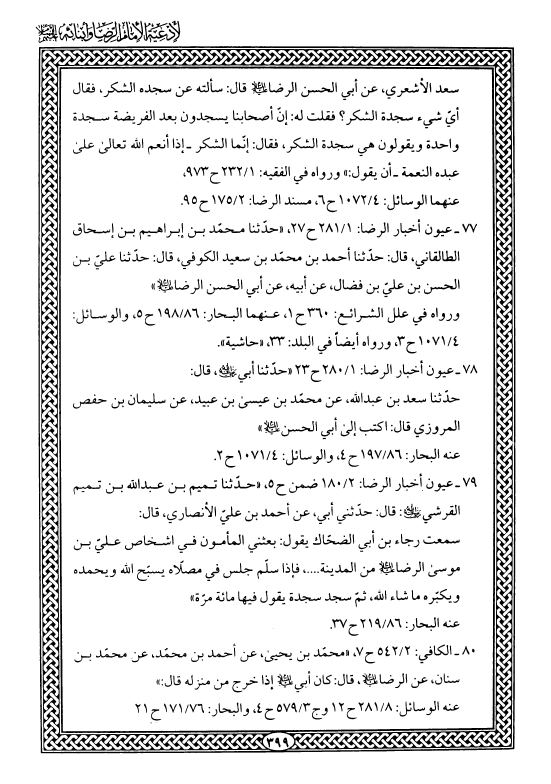 لأدعية الإمام الرضا وأبنائه ﷺ
سعد الأشعري، عن أبي الحسن الرضا عليه السلام قال: سألته عن سجدة الشكر، فقال
أيّ شيء سجدة الشكر؟ فقلت له: إنّ أصحابنا يسجدون بعد الفريضة سجدة
واحدة ويقولون هي سجدة الشكر، فقال: إنّما الشكر ـ إذا أنعم الله تعالى على
عبده النعمة ـ أن يقول:» ورواه في الفقيه: ٢٣٢/١ح٩٧٣،
عنهما الوسائل: ١٠٧٢/٤ح٦، مسند الرضا: ١٧٥/٢ح٩٥.
٧٧ ـ عيون أخبار الرضا: ٢٨١/١ح٢٧، «حدّثنا محمّد بن إبراهيم بن إسحاق
الطالقاني، قال: حدّثنا أحمد بن محمّد بن سعيد الكوفي، قال: حدّثنا عليّ بن
الحسن بن عليّ بن فضال، عن أبيه، عن أبي الحسن الرضا عليه السلام»
ورواه في علل الشرائع: ٣٦٠ح١، عنهما البحار: ١٩٨/٨٦ح٥، والوسائل:
١٠٧١/٤ح٣، ورواه أيضاً في البلد: ٣٣، «حاشية».
٧٨ ـ عيون أخبار الرضا: ٢٨٠/١ح٢٣ «حدّثنا أبي رحمه الله، قال:
حدّثنا سعد بن عبدالله، عن محمّد بن عيسى بن عبيد، عن سليمان بن حفص
المروزي قال: اكتب إلى أبي الحسن عليه السلام»
عنه البحار: ١٩٧/٨٦ح٤، والوسائل: ١٠٧١/٤ح٢.
٧٩ ـ عيون أخبار الرضا: ١٨٠/٢ ضمن ح٥، «حدّثنا تميم بن عبدالله بن تميم
القرشي رحمه الله: قال: حدّثني أبي، عن أحمد بن عليّ الأنصاري، قال:
سمعت رجاء بن أبي الضحّاك يقول: بعثني المأمون في اشخاص عليّ بن
موسى الرضا عليه السلام من المدينة....، فإذا سلّم جلس في مصلّاه يسبّح الله ويحمده
ويكبّره ما شاء الله، ثمّ سجد سجدة يقول فيها مائة مرّة»
عنه البحار: ٢١٩/٨٦ح٣٧.
٨٠ ـ الكافي: ٥٤٢/٢ح٧، «محمّد بن يحيى، عن أحمد بن محمّد، عن محمّد بن
سنان، عن الرضا عليه السلام، قال: كان أبي عليه السلام إذا خرج من منزله قال:»
عنه الوسائل: ٢٨١/٨ح١٢ وج٥٧٩/٣ح٤، والبحار: ١٧١/٧٦ح٢١
٣٩٩